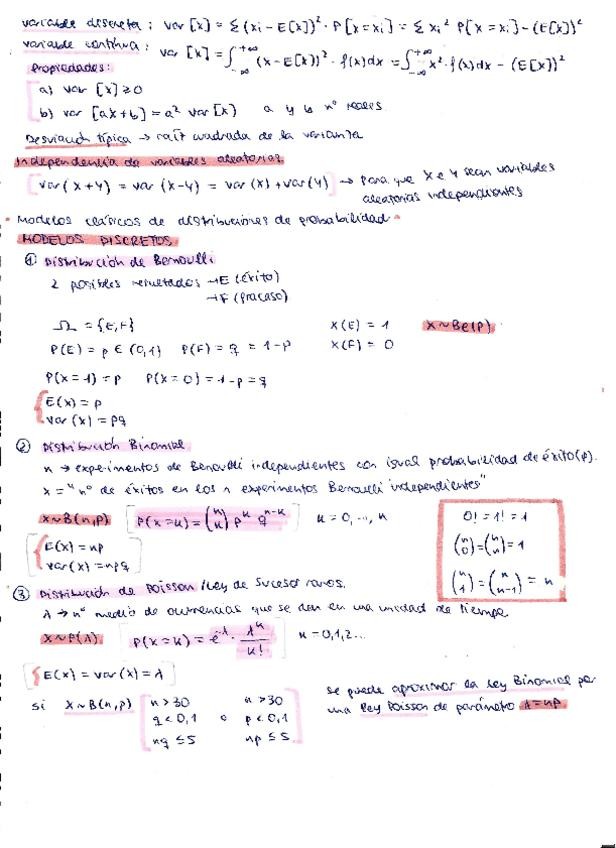 variable discreta: var [x] = Σ (xi - E[x])² · P[x=xi] = Σ xi² P[x=xi] - (E[x])²
variable continua: var [x] = ∫_{-∞}^{+∞} (x-E[x])² · f(x)dx = ∫_{-∞}^{+∞} x² · f(x)dx - (E[x])²
Propiedades:
a) var [x] ≥ 0
b) var [ax+b] = a² var [x] a y b nº reales
Desviación típica → raíz cuadrada de la varianza
Independencia de variables aleatorias
var(x+y) = var(x-y) = var(x) + var(y) → para que x e y sean variables
aleatorias independientes
• Modelos clásicos de distribuciones de probabilidad •
MODELOS DISCRETOS:
① Distribución de Bernoulli
2 posibles resultados → E (éxito)
→ F (fracaso)
Ω = {E,F} X(E) = 1 X~Be(p)
P(E) = p ∈ (0,1) P(F) = q = 1-p X(F) = 0
P(x=1) = p P(x=0) = 1-p = q
E(x) = p
var(x) = pq
② Distribución Binomial
n → experimentos de Bernoulli independientes con igual probabilidad de éxito (p).
x = "nº de éxitos en los n experimentos Bernoulli independientes"
X~B(n,p) P(x=k) = (n k) p^k q^{n-k} k = 0, ..., n
0! = 1! = 1
(n 0) = (n n) = 1
(n 1) = (n n-1) = n
E(x) = np
var(x) = npq
③ Distribución de Poisson / Ley de sucesos raros.
λ → nº medio de ocurrencias que se dan en una unidad de tiempo
X~P(λ). P(x=k) = e^{-λ} · λ^k / k! k = 0,1,2...
E(x) = var(x) = λ
si X~B(n,p) n > 30 n > 30
q < 0,1 o p < 0,1
nq ≤ 5 np ≤ 5
se puede aproximar la ley Binomial por
una ley Poisson de parámetro λ=np